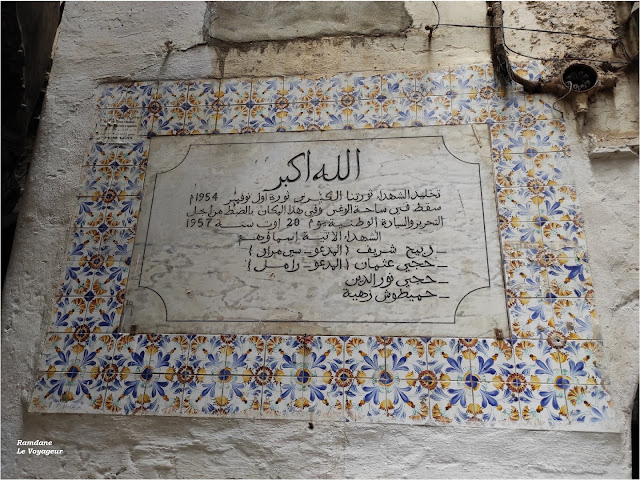 الله أكبر
تخليد الشهداء ثورتنا الكبرى ثورة اول نوفمبر 1954م
سقط في ساحة الوغى وفي هذا المكان بالضبط من اجل
التحرير والسيادة الوطنية يوم 28 اوت سنة 1957
الشهداء الآتية اسماؤهم
_ ربيح شريف (المدعو - سي مراد)
_ حجي عثمان (المدعو - رامل)
_ حجي نور الدين
_ حميطوش زهية
Ramdane
Le Voyageur